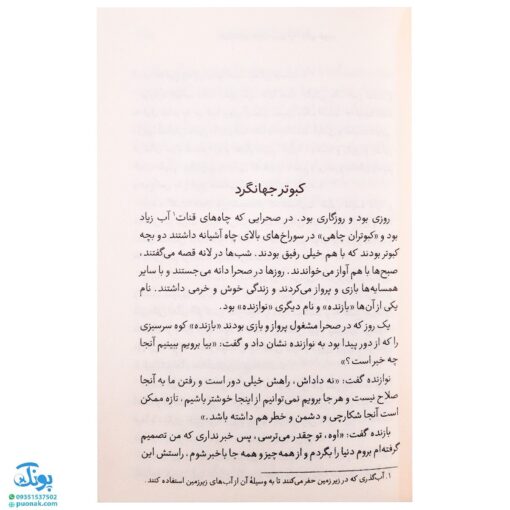 کبوتر جهانگرد
روزی بود و روزگاری بود. در صحرایی که چاه‌های قنات۱ آب زیاد
بود و «کبوتران چاهی» در سوراخ‌های بالای چاه آشیانه داشتند دو بچه
کبوتر بودند که با هم خیلی رفیق بودند. شب‌ها در لانه قصه می‌گفتند،
صبح‌ها با هم آواز می‌خواندند. روزها در صحرا دانه می‌جستند و با سایر
همسایه‌ها بازی و پرواز می‌کردند و زندگی خوش و خرمی داشتند. نام
یکی از آن‌ها «بازنده» و نام دیگری «نوازنده» بود.
یک روز که در صحرا مشغول پرواز و بازی بودند «بازنده» کوه سرسبزی
را که از دور پیدا بود به نوازنده نشان داد و گفت: «بیا برویم ببینیم آنجا
چه خبر است؟»
نوازنده گفت: «نه داداش، راهش خیلی دور است و رفتن ما به آنجا
صلاح نیست و هر جا برویم نمی‌توانیم از اینجا خوشتر باشیم، تازه ممکن
است آنجا شکارچی و دشمن و خطر هم داشته باشد.»
بازنده گفت: «اوه، تو چقدر می‌ترسی، پس خبر نداری که من تصمیم
گرفته‌ام بروم دنیا را بگردم و از همه چیز و همه جا باخبر شوم. راستش این
۱. آب‌گذری که در زیر زمین حفر می‌کنند تا به وسیلهٔ آن از آب‌های زیرزمین استفاده کنند.
پونک
09351537502
puonak.com